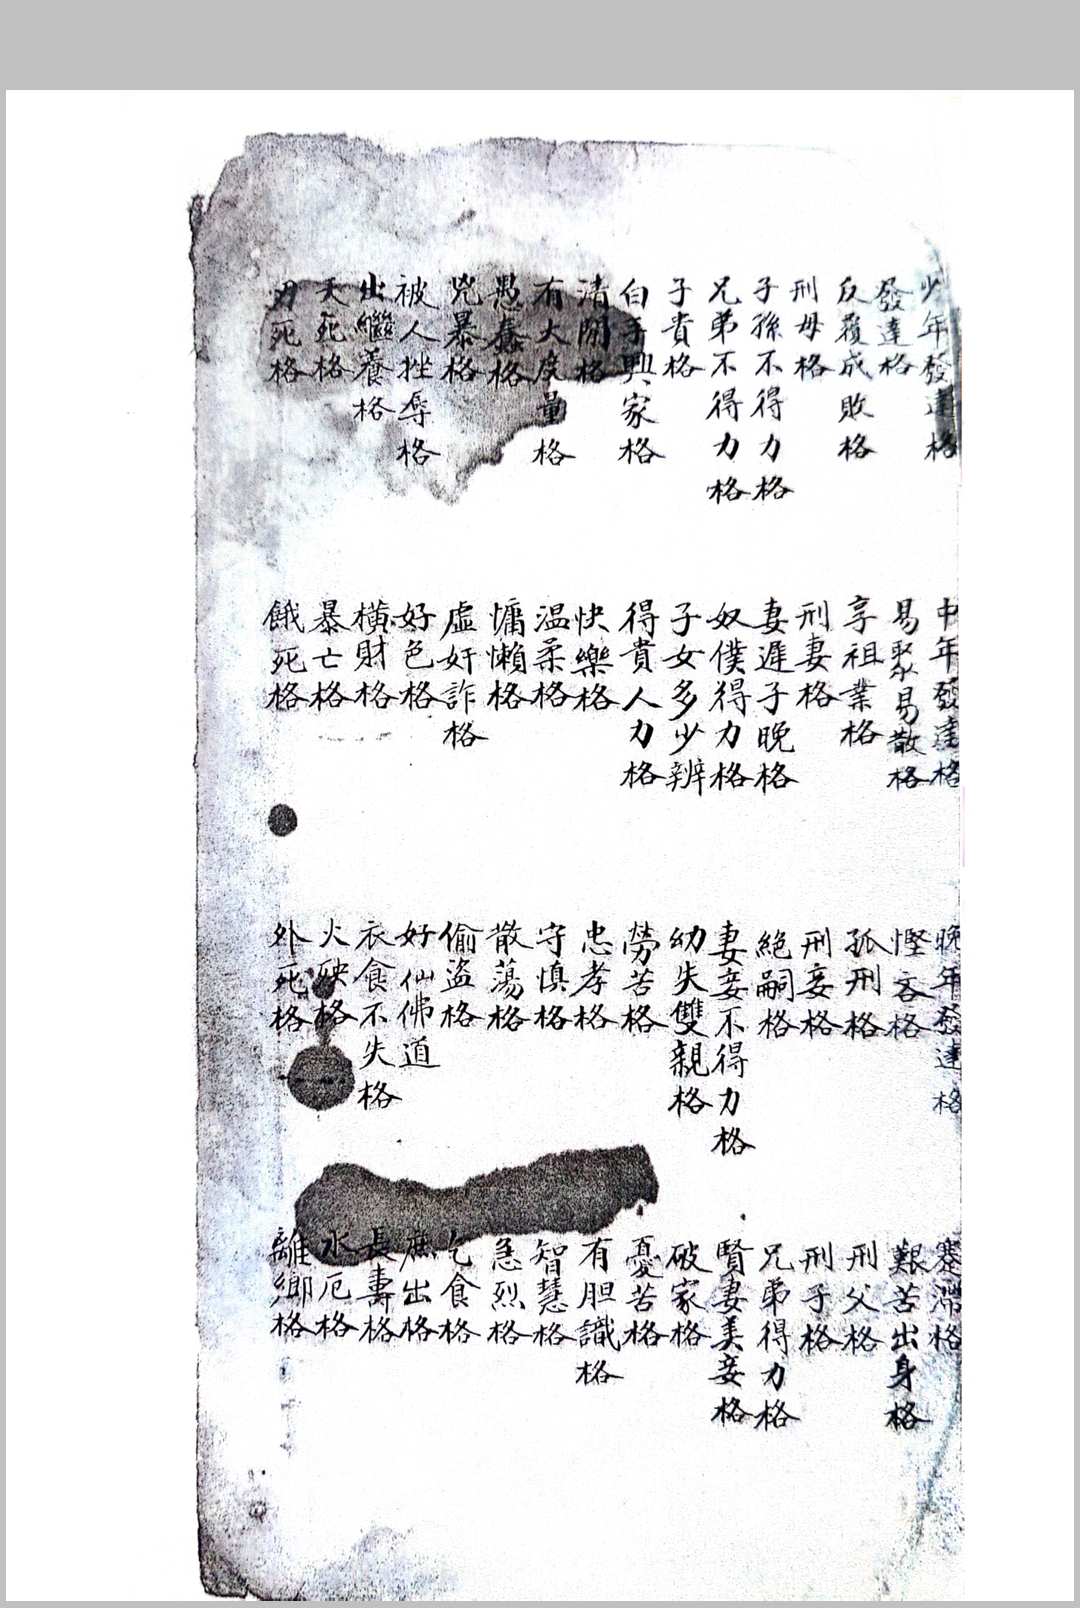 少年發達格
中年發達格
晚年發達格
蹇滯格
發達格
易聚易散格
慳吝格
艱苦出身格
反覆成敗格
享祖業格
孤刑格
刑父格
刑母格
刑妻格
刑妾格
刑子格
子孫不得力格
妻遲子晚格
絕嗣格
兄弟得力格
兄弟不得力格
奴僕得力格
妻妾不得力格
賢妻美妾格
子貴格
子女多少辨
幼失雙親格
破家格
白手興家格
得貴人力格
勞苦格
憂苦格
清閑格
快樂格
忠孝格
有胆識格
有大度量格
温柔格
守慎格
智慧格
愚蠢格
慵懶格
散蕩格
急烈格
兇暴格
虛奸詐格
偷盜格
乞食格
被人挫辱格
好色格
好仙佛道
庶出格
出繼養格
橫財格
衣食不失格
長壽格
夭死格
暴亡格
火殃格
水厄格
刃死格
餓死格
外死格
離鄉格